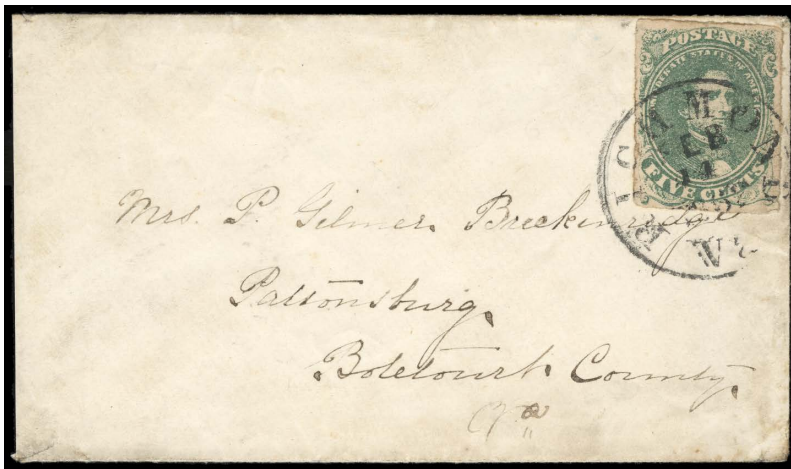 POSTAGE
CONFEDERATE STATES OF AMERICA
FIVE CENTS
RICHMOND VA.
FEB
14
Mrs. P. Gilmer Breckinridge
Pattonsburg,
Botetourt County,
Va